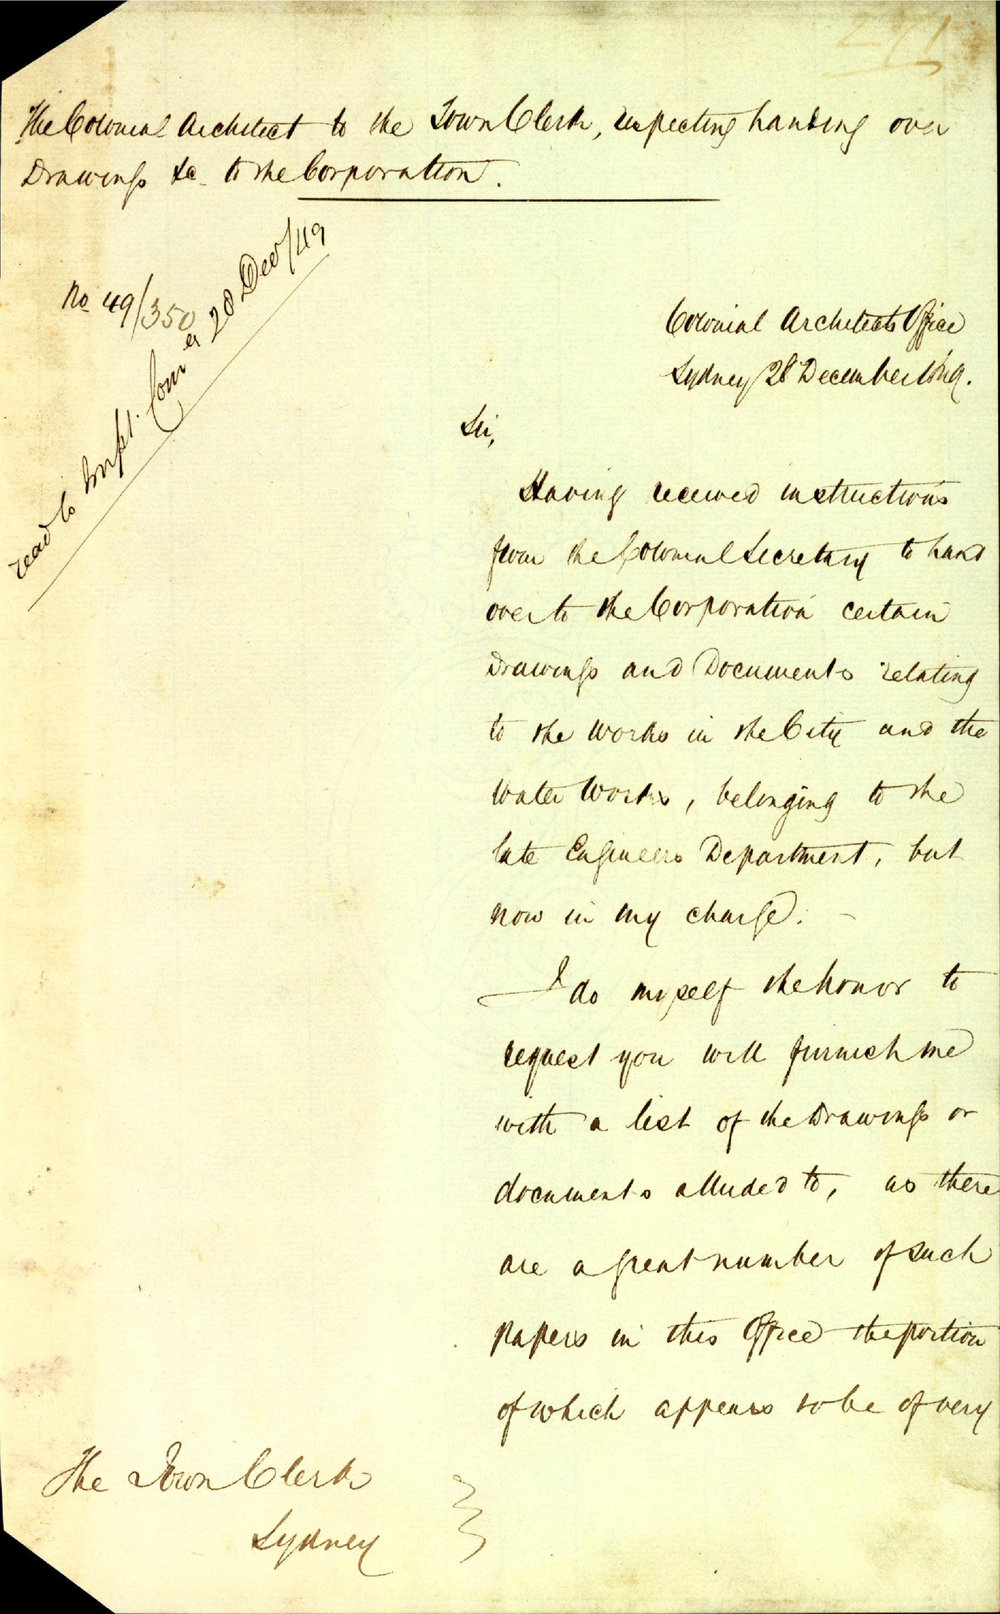 271
The Colonial Architect to the Town Clerk, respecting handing over
Drawings &c. to the Corporation.
No 49/350
read to Impt. Comee 28 Decr/49
Colonial Architects Office
Sydney 28 December 1849.
Sir,
Having received instructions
from the Colonial Secretary to hand
over to the Corporation certain
Drawings and Documents relating
to the Works in the City and the
Water Works, belonging to the
late Engineers Department, but
now in my charge. –
I do myself the honor to
request you will furnish me
with a list of the Drawings or
documents alluded to, as there
are a great number of such
papers in this Office the portion
of which appears to be of very
The Town Clerk
Sydney